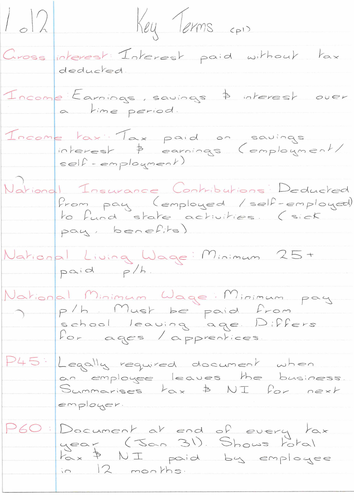 1 of 2 Key Terms (p1)
Gross interest Interest paid without tax
deducted.
Income Earnings, savings & interest over
a time period.
Income tax: Tax paid on savings
interest & earnings (employment/
self-employment)
National Insurance Contributions: Deducted
from pay (employed / self-employed)
to fund state activities. (sick
pay, benefits)
National Living Wage: Minimum 25+
paid p/h.
National Minimum Wage: Minimum pay
p/h. Must be paid from
school leaving age. Differs
for ages / apprentices
P45: Legally required document when
an employee leaves the business.
Summarises tax & NI for next
employer.
P60: Document at end of every tax
year (Jan 31) Shows total
tax & NI paid by employee
in 12 months.